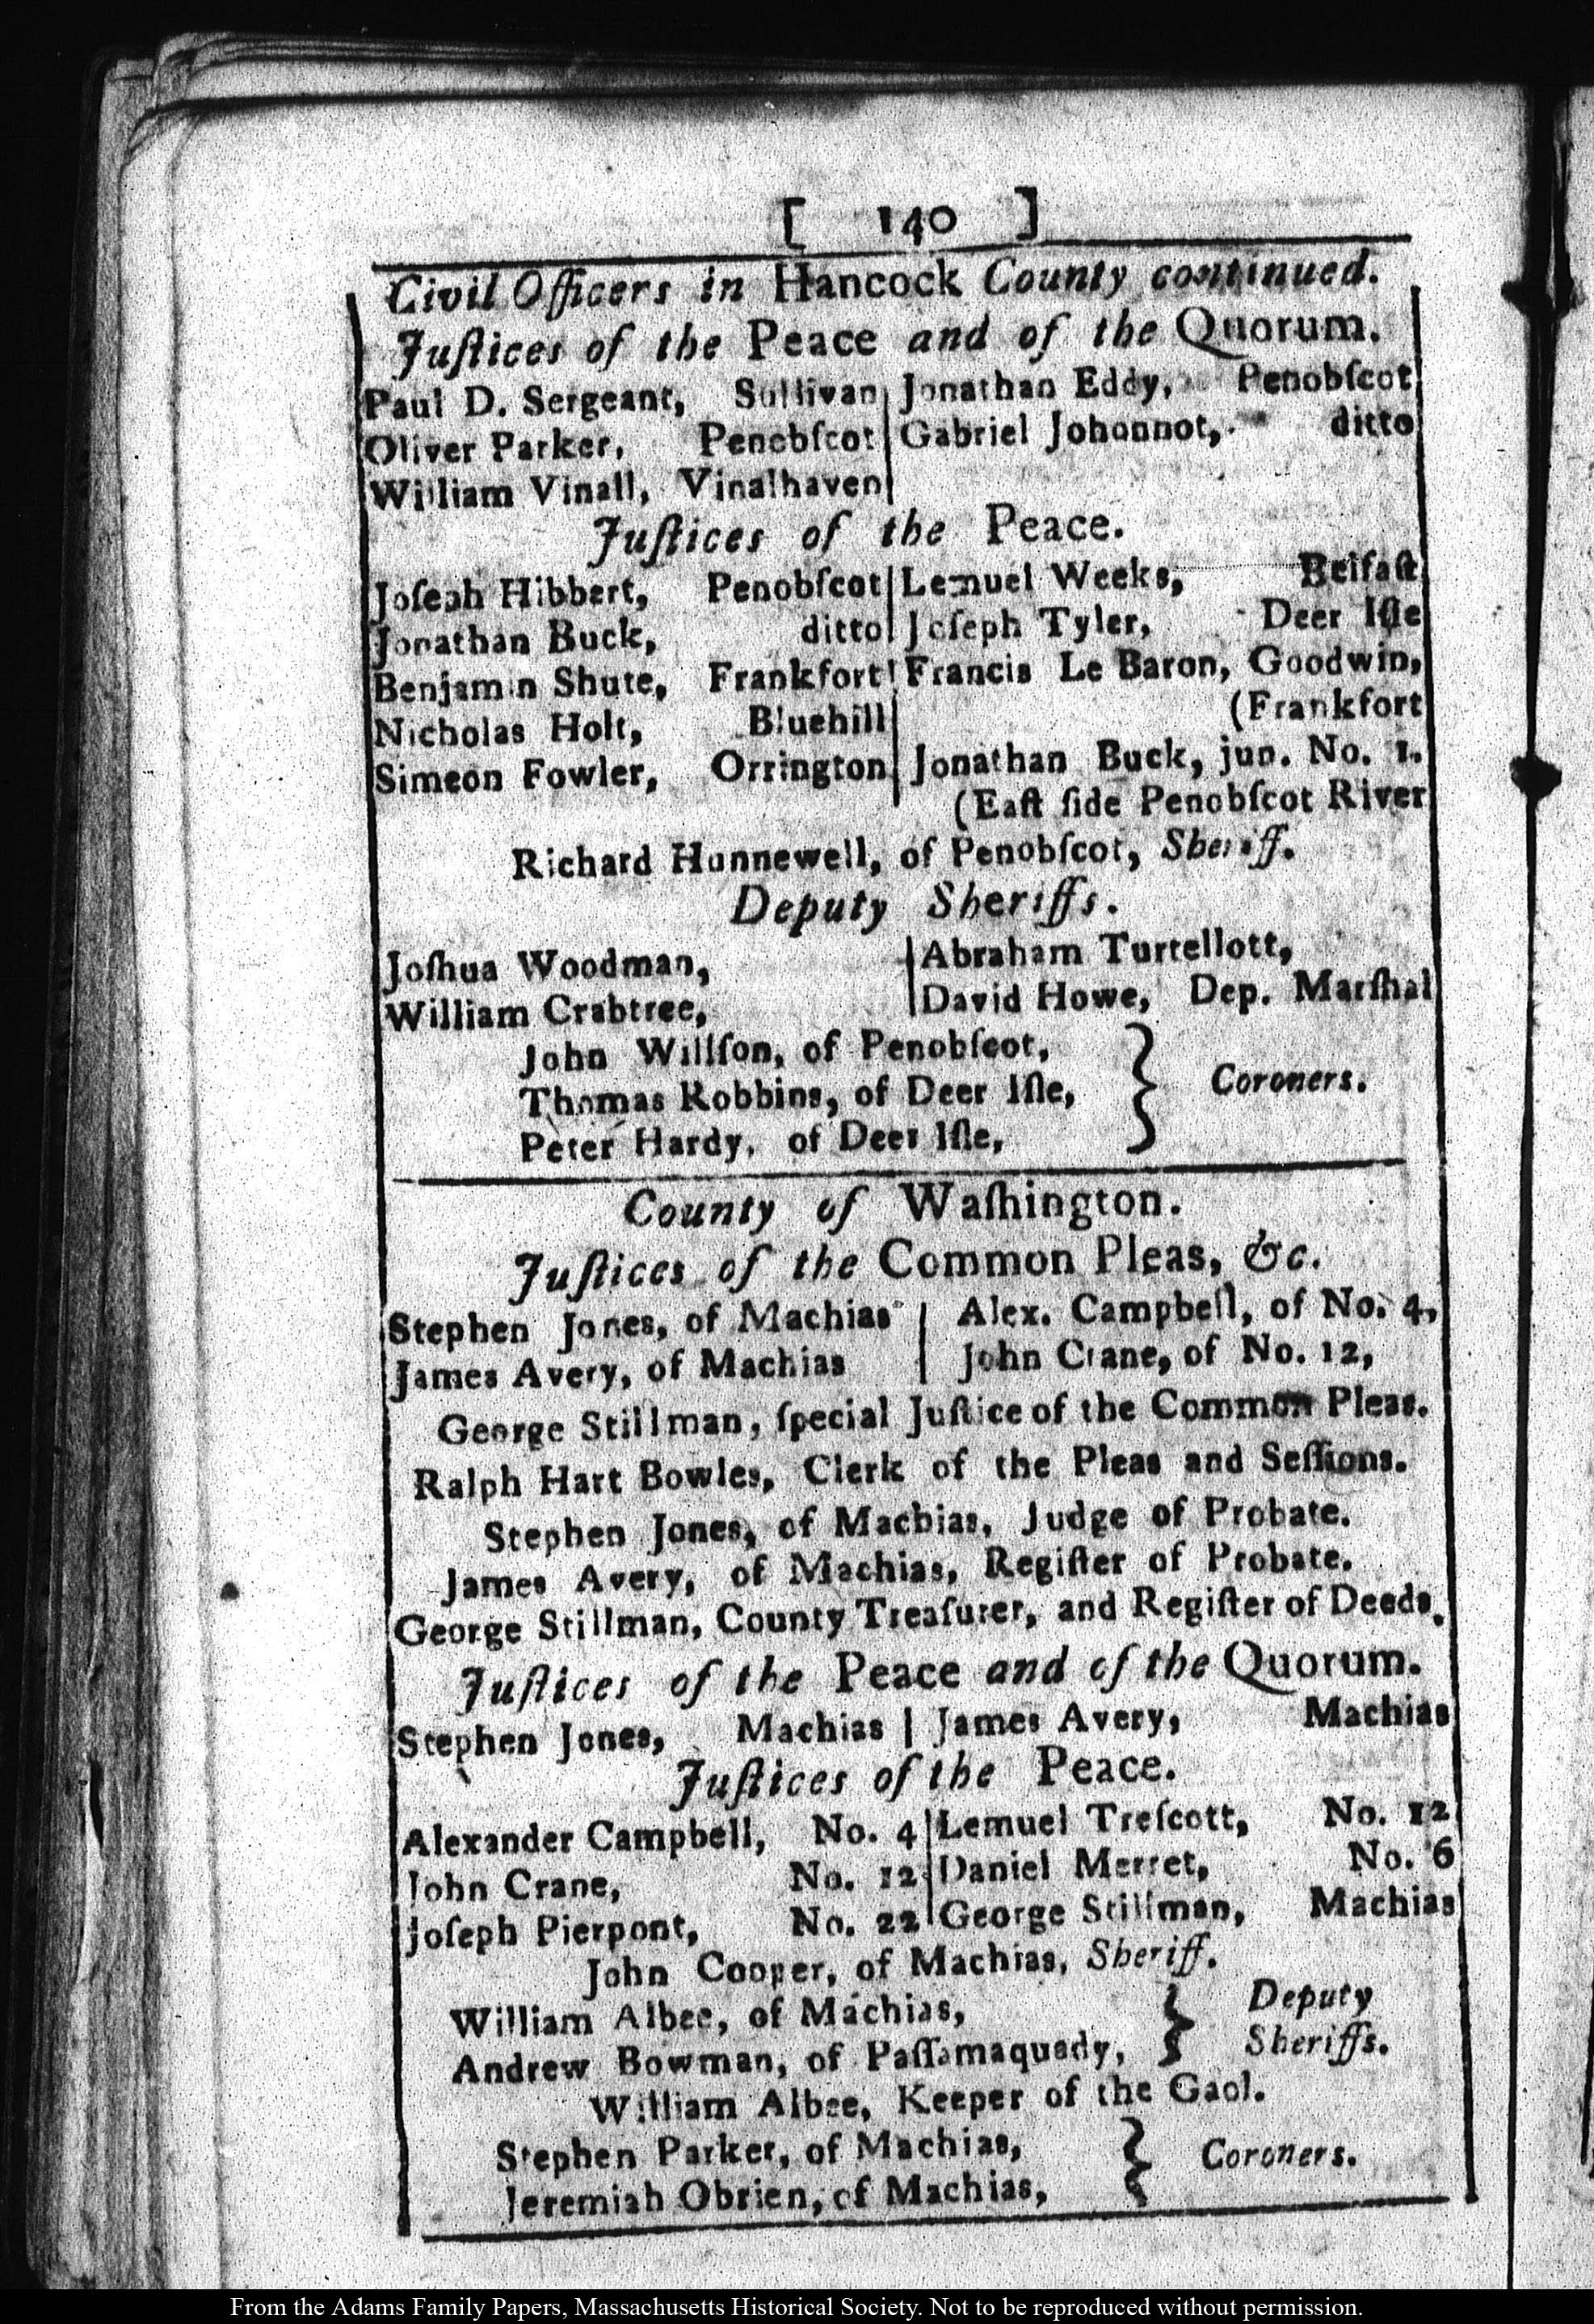 [ 140 ]
Civil Officers in Hancock County continued.
Juſtices of the Peace and of the Quorum.
Paul D. Sergeant, Sullivan | Jonathan Eddy, Penobſcot
Oliver Parker, Penobſcot | Gabriel Johonnot, ditto
William Vinall, Vinalhaven |
Juſtices of the Peace.
Joſeph Hibbert, Penobſcot | Lemuel Weeks, Belfaſt
Jonathan Buck, ditto | Joſeph Tyler, Deer Iſle
Benjamin Shute, Frankfort | Francis Le Baron, Goodwin,
Nicholas Holt, Bluehill | (Frankfort
Simeon Fowler, Orrington | Jonathan Buck, jun. No. 1.
(Eaſt ſide Penobſcot River
Richard Hunnewell, of Penobſcot, Sheriff.
Deputy Sheriffs.
Joſhua Woodman, | Abraham Turtellott,
William Crabtree, | David Howe, Dep. Marſhal
John Willſon, of Penobſcot,
Thomas Robbins, of Deer Iſle, } Coroners.
Peter Hardy, of Deer Iſle,
County of Waſhington.
Juſtices of the Common Pleas, &c.
Stephen Jones, of Machias | Alex. Campbell, of No. 4,
James Avery, of Machias | John Crane, of No. 12,
George Stillman, ſpecial Juſtice of the Common Pleas.
Ralph Hart Bowles, Clerk of the Pleas and Seſſions.
Stephen Jones, of Machias, Judge of Probate.
James Avery, of Machias, Regiſter of Probate.
George Stillman, County Treaſurer, and Regiſter of Deeds.
Juſtices of the Peace and of the Quorum.
Stephen Jones, Machias | James Avery, Machias
Juſtices of the Peace.
Alexander Campbell, No. 4 | Lemuel Treſcott, No. 12
John Crane, No. 12 | Daniel Merret, No. 6
Joſeph Pierpont, No. 22 | George Stillman, Machias
John Cooper, of Machias, Sheriff.
William Albee, of Machias, } Deputy
Andrew Bowman, of Paſſamaquady, Sheriffs.
William Albee, Keeper of the Gaol.
Stephen Parker, of Machias, } Coroners.
Jeremiah Obrien, of Machias,
From the Adams Family Papers, Massachusetts Historical Society. Not to be reproduced without permission.